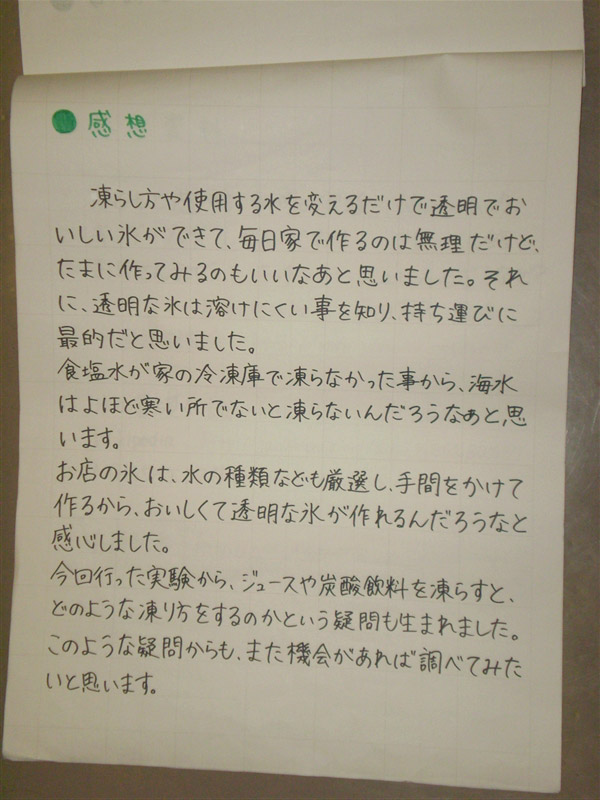 ●感想
凍らし方や使用する水を変えるだけで透明でお
いしい氷ができて、毎日家で作るのは無理だけど、
たまに作ってみるのもいいなあと思いました。それ
に、透明な氷は溶けにくい事を知り、持ち運びに
最的だと思いました。
食塩水が家の冷凍庫で凍らなかった事から、海水
はよほど寒い所でないと凍らないんだろうなあと思
います。
お店の氷は、水の種類なども厳選し、手間をかけて
作るから、おいしくて透明な氷が作れるんだろうなと
感心しました。
今回行った実験から、ジュースや炭酸飲料を凍らすと、
どのような凍り方をするのかという疑問も生まれました。
このような疑問からも、また機会があれば調べてみた
いと思います。